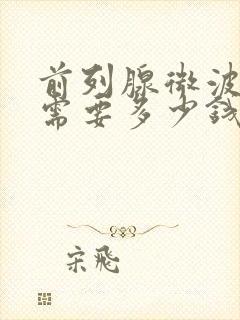 前列腺微波
需要多少钱
宋飛